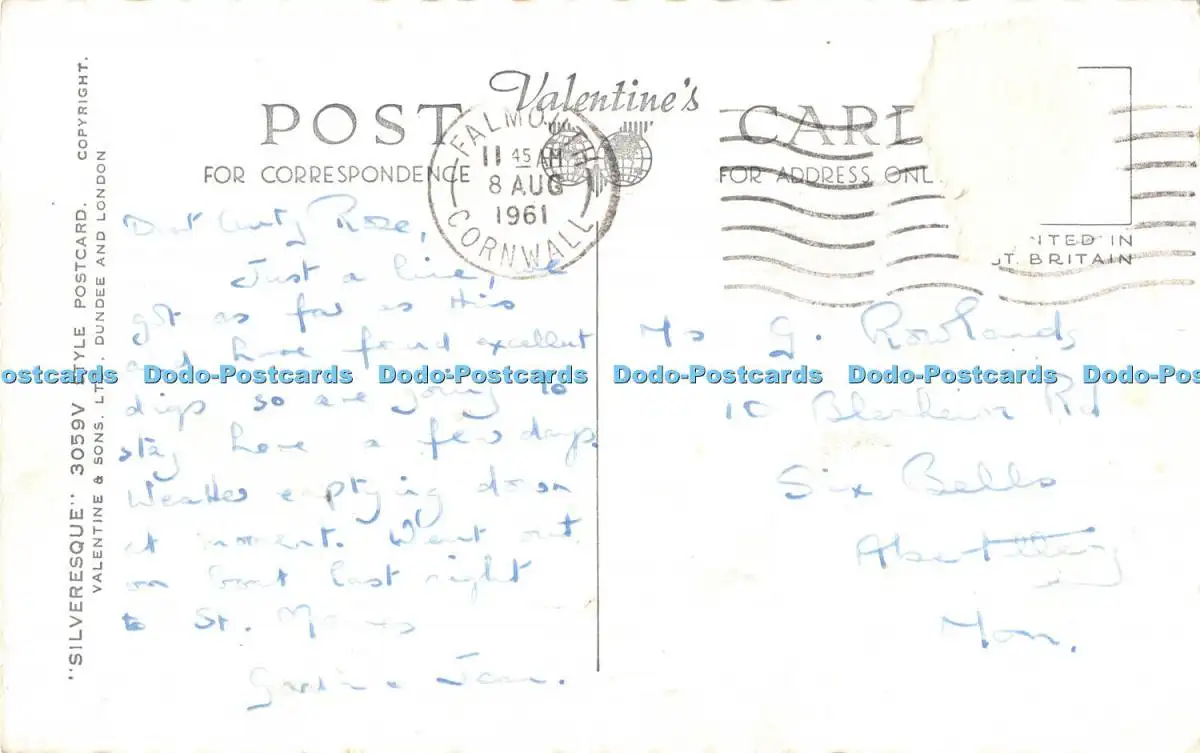 Valentine's
POST CARD
FOR CORRESPONDENCE
FOR ADDRESS ONL
FALMOUTH
11 45 AM
8 AUG
1961
CORNWALL
ITED IN
T. BRITAIN
"SILVERESQUE" 3059V STYLE POSTCARD. COPYRIGHT.
VALENTINE & SONS. LTD. DUNDEE AND LONDON
Aunty Rose,
Just a line, we
got as far as this
and have found excellent
digs so are going to
stay here a few days.
Weather emptying down
at moment. Went out
on boat last night
to St. Mawes
Jean.
G. Rowlands
10 Blenheim Rd
Six Bells
Abertillery
Mon.
ostcards Dodo-Postcards Dodo-Postcards Dodo-Postcards Dodo-Postcards Dodo-Postc